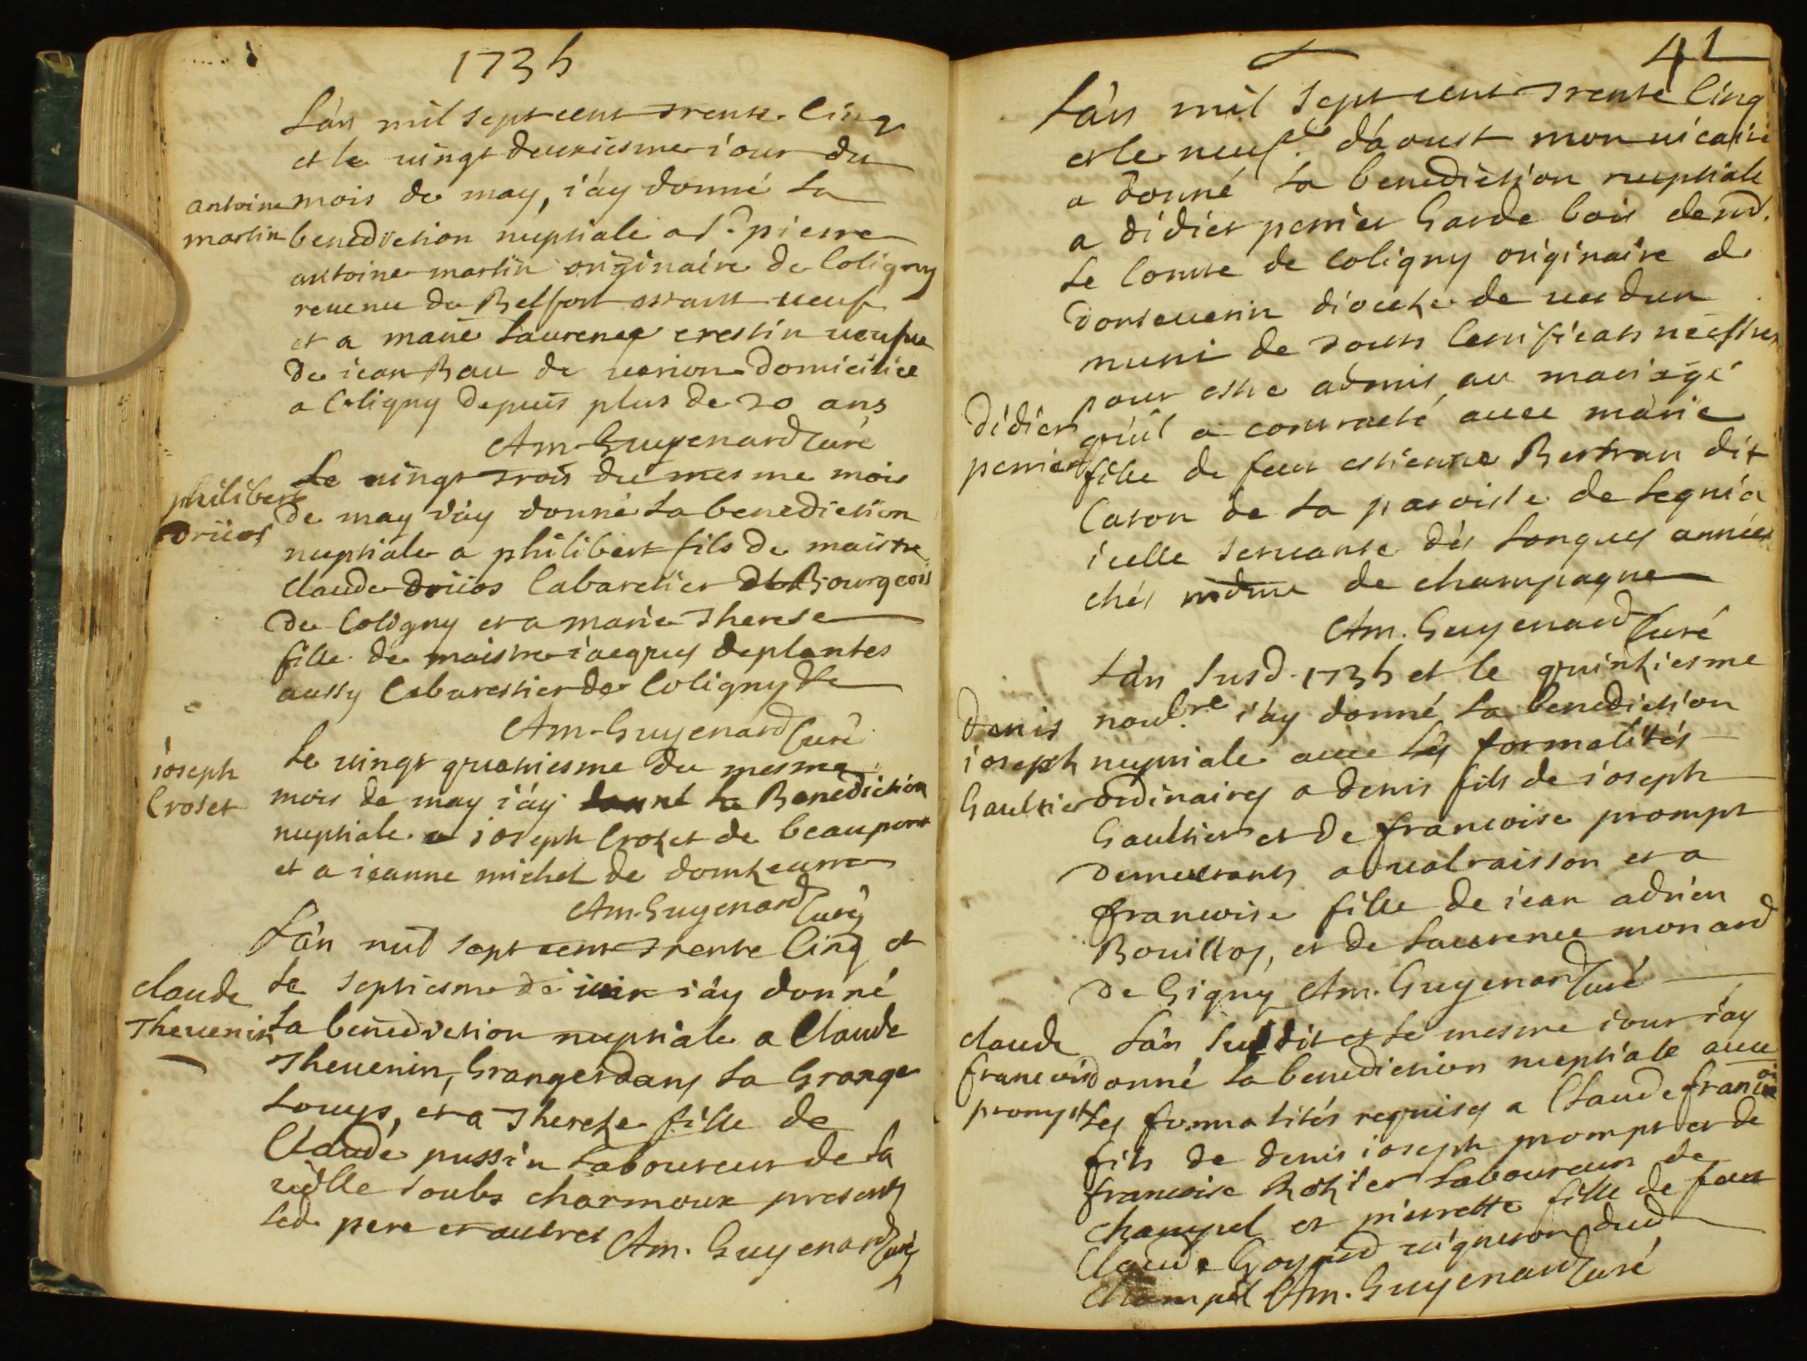 1735
L'an mil sept cent trente Cinq
et le vingt deuxiesme iour du
antoine mois de may, i'ay donné la
martin benediction nuptiale a Sr. pierre
antoine martin originaire de Coligny
revenu de Belfort estant veuf
et a marie Laurence crestin veufve
de iean Bau de verion domiciliée
a Coligny depuis plus de 20 ans
Am. Guyenard Curé
Le vingt trois du mesme mois
philibert
de may i'ay donné la benediction
Driios
nuptiale a philibert fils de maistre
Claude Driios Cabaretier et Bourgeois
de Coligny et a marie Therese
fille de maistre iacques deplantes
aussy Cabarestier de Coligny
Am. Guyenard Curé
ioseph Le vingt quatriesme du mesme
Croset mois de may i'ay donné la Benediction
nuptiale a ioseph Crozet de beaupont
et a ieanne michel de domzeurre
Am. Guyenard Curé
L'an mil sept cent trente Cinq et
claude le septiesme de iuin i'ay donné
Thevenin la benediction nuptiale a Claude
Thevenin, Granger dans la Grange
Louys, et a Thereze fille de
Claude pussin Laboureur de la
ville soubs charmoux presents
led. pere et autres Am. Guyenard Curé
41
L'an mil sept cent trente Cinq
et le neufe d'aoust mon vicaire
a donné la benediction nuptiale
a didier perrier Garde bois de md.
le Comte de Coligny originaire de
Dontevenin diocese de verdun
muni de touts Certificats necessres
pour estre admis au mariage
didier qu'il a contracté avec marie
perrier fille de feu estienne Bertran dit
Caton de la paroisse de Legnia
icelle servante dés longues années
chés mdme de champagne
Am. Guyenard Curé
L'an susd. 1735 et le quinziesme
Denis novbre i'ay donné la benediction
ioseph nuptiale avec les formalités
Gaultier ordinaires a denis fils de ioseph
Gaultier et de francoise prompt
demeurants a nalraisson et a
francoise fille de iean adrien
Bouillos, et de Laurence monard
de Gigny Am. Guyenard Curé
claude L'an susdit et le mesme iour i'ay
francois donné la benediction nuptiale avec
prompt les formalités requises a Claude francois
fils de denis ioseph prompt et de
francoise Rozier Laboureur de
champel et pierrette fille de feu
Claude Goyard vigneron dud.
Champel Am. Guyenard Curé